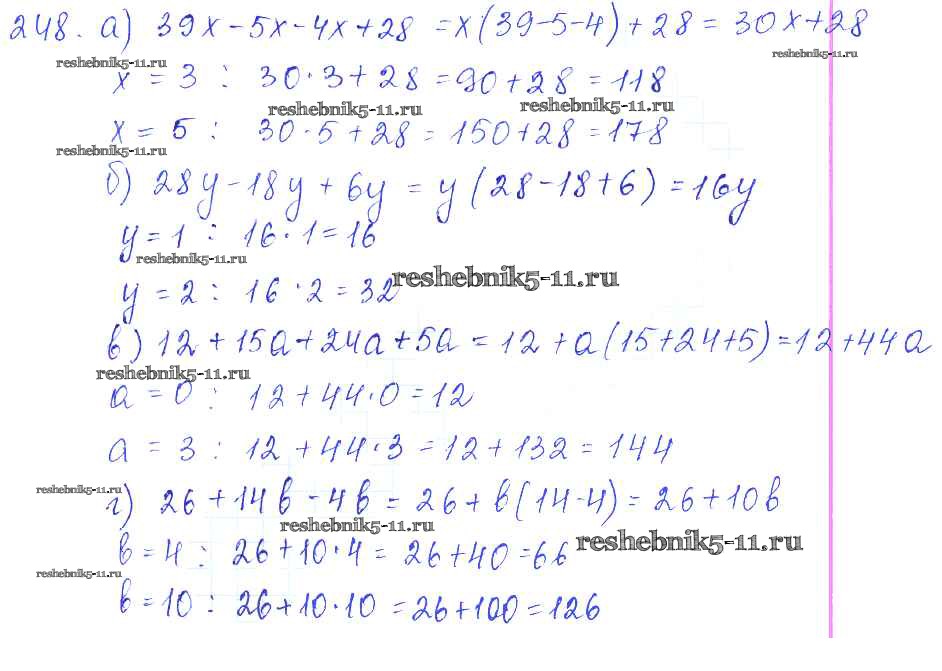 248. а) 39x - 5x - 4x + 28 = x(39 - 5 - 4) + 28 = 30x + 28
reshebnik5-11.ru
x = 3 : 30 · 3 + 28 = 90 + 28 = 118
reshebnik5-11.ru reshebnik5-11.ru
x = 5 : 30 · 5 + 28 = 150 + 28 = 178
reshebnik5-11.ru
б) 28y - 18y + 6y = y(28 - 18 + 6) = 16y
y = 1 : 16 · 1 = 16
reshebnik5-11.ru
reshebnik5-11.ru
y = 2 : 16 · 2 = 32
в) 12 + 15a + 24a + 5a = 12 + a(15 + 24 + 5) = 12 + 44a
reshebnik5-11.ru
a = 0 : 12 + 44 · 0 = 12
a = 3 : 12 + 44 · 3 = 12 + 132 = 144
reshebnik5-11.ru
г) 26 + 14в - 4в = 26 + в(14 - 4) = 26 + 10в
reshebnik5-11.ru
в = 4 : 26 + 10 · 4 = 26 + 40 = 66
reshebnik5-11.ru
reshebnik5-11.ru
в = 10 : 26 + 10 · 10 = 26 + 100 = 126